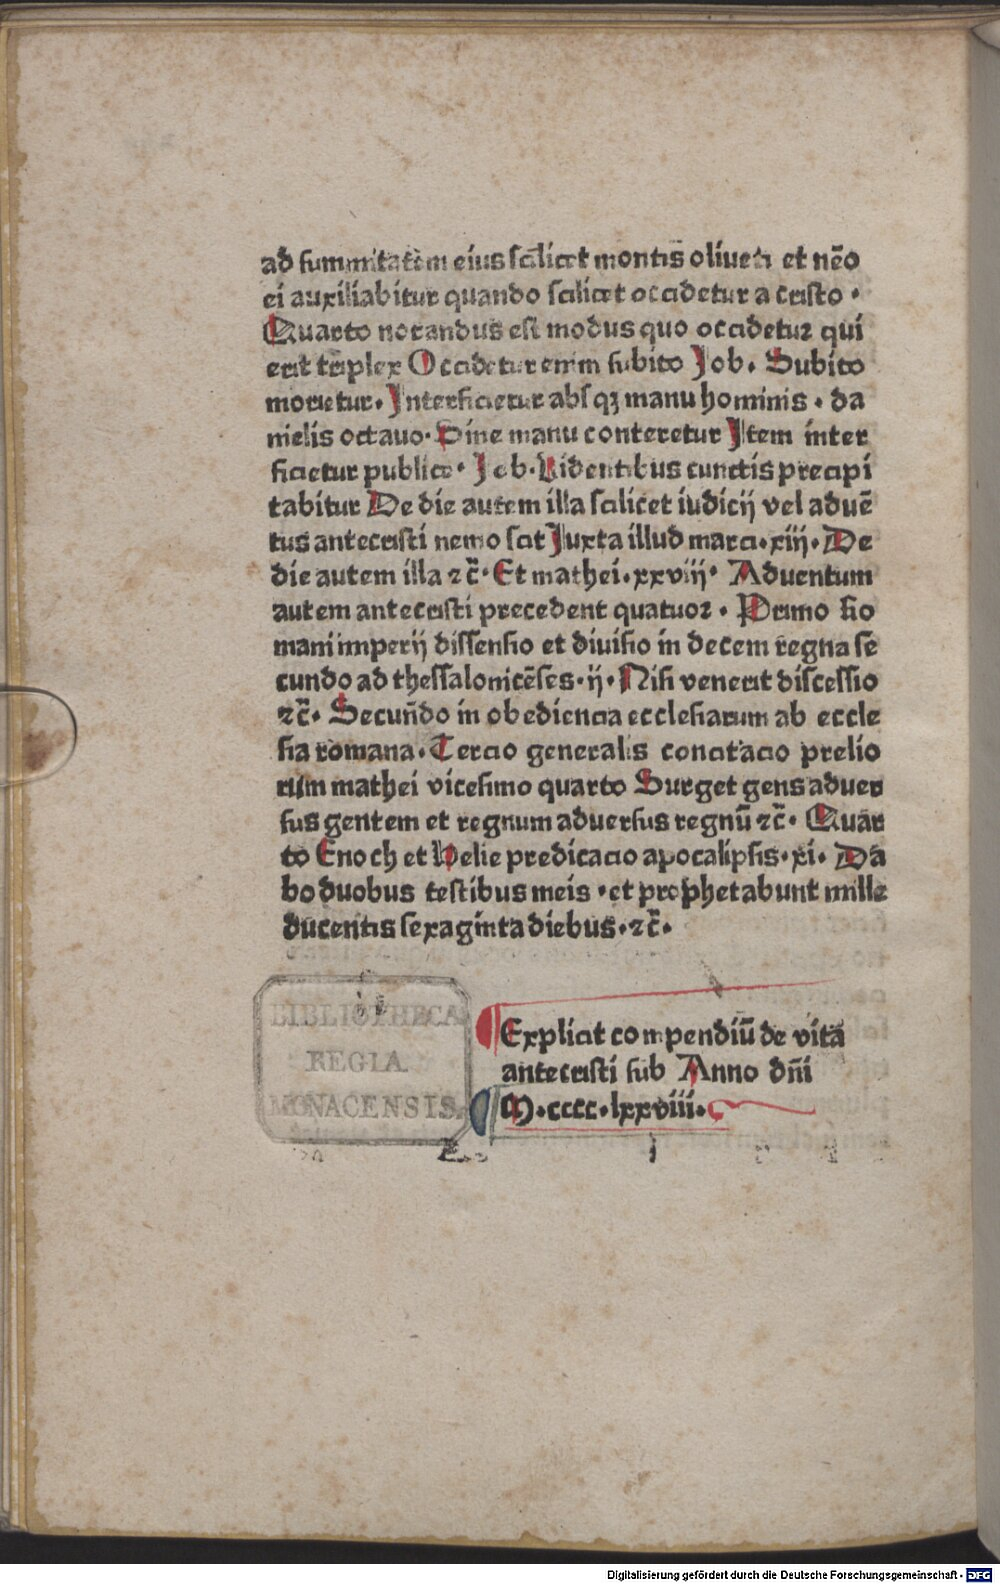 ad summitatem eius scilicet montis oliueti et nēo
ei auxiliabitur quando scilicet occidetur a cristo ·
Quarto notandus est modus quo occidetur qui
erit triplex Occidetur enim subito Job. Subito
morietur. Interficietur absqꝫ manu hominis · da
nielis octauo· Sine manu conteretur Item inter
ficietur publice· Job. Uidentibus cunctis precipi
tabitur De die autem illa scilicet iudicij vel aduē
tus antecristi nemo scit Juxta illud marci·xiij· De
die autem illa ⁊c̄· Et mathei·xxviij· Aduentum
autem antecristi precedent quatuor · Primo Ro
mani imperij dissensio et diuisio in decem regna se
cundo ad thessalonicēses·ij· Nisi venerit discessio
⁊c̄· Secundo in obediencia ecclesiarum ab eccle
sia romana· Tercio generalis concitacio prelio
rum mathei vicesimo quarto Surget gens aduer
sus gentem et regnum aduersus regnū ⁊c̄· Quar
to Enoch et Helie predicacio apocalipsis·xi· Da
bo duobus testibus meis · et prophetabunt mille
ducentis sexaginta diebus·⁊c̄·
BIBLIOTHECA
REGIA
MONACENSIS
Explicit compendiū de vita
antecristi sub Anno dn̄i
M·cccc·lxxviii·
Digitalisierung gefördert durch die Deutsche Forschungsgemeinschaft - DFG